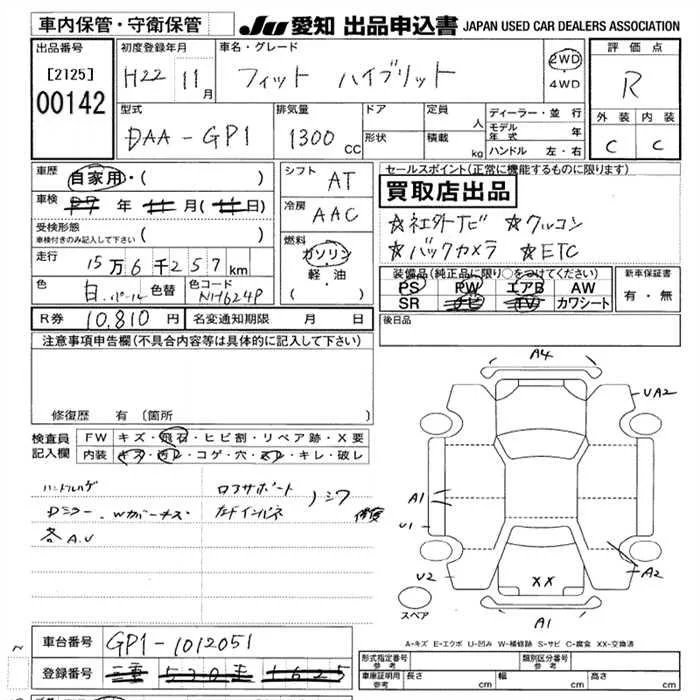 車内保管・守衛保管
JU 愛知 出品申込書 JAPAN USED CAR DEALERS ASSOCIATION
出品番号
[2125]
00142
初度登録年月
H22 11月
車名・グレード
フィット ハイブリット
2WD
・
4WD
評価点
R
外装 内装
C C
型式
DAA-GP1
排気量
1300cc
ドア
形状
定員 人
積載 kg
ディーラー・並行
モデル年式 年
ハンドル 左・右
車歴 自家用・( )
車検 年 月( 日)
受検形態
車検付きのみ記入して下さい ( )
走行 15万6千257km
色 白パール 色替 色コード NH624P
シフト AT
冷房 AAC
燃料
ガソリン
軽・油
( ・ )
セールスポイント(正常に機能するものに限ります)
買取店出品
☆社外ナビ ☆クルコン
☆バックカメラ ☆ETC
装備品(純正品に限り○をつけてください)
PS PW エアB AW
SR ナビ TV カワシート
新車保証書
有・無
後日品
R券 10,810円 名変通知期限 月 日
注意事項申告欄(不具合内容等は具体的に記入して下さい)
修復歴 有(箇所 )
検査員記入欄
FW キズ・飛石・ヒビ割・リペア跡・X要
内装 キズ・汚レ・コゲ・穴・スレ・キレ・破レ
ハンドルハゲ
Dミラー、Wカバーキズ
各A.U
コアサポート
左ドインパネ
シワ
修復
A4
UA2
A1
U1
U2
XX
A2
A1
スペア
A-キズ E-エクボ U-凹み W-補修跡 S-サビ C-腐食 XX-交換済
車台番号 GP1-1012051
登録番号
形式指定番号 参考
類別区分番号 参考
車庫証明用 参考 長さ cm 幅 cm 高さ cm